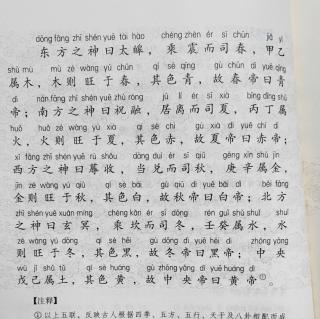 dōng fāng zhī shén yuē tài hào chéng zhèn ér sī chūn jiǎ yǐ
东方之神曰太皞，乘震而司春，甲乙
shǔ mù mù zé wàng yú chūn qí sè qīng gù chūn dì yuē qīng
属木，木则旺于春，其色青，故春帝曰青
dì nán fāng zhī shén yuē zhù róng jū lí ér sī xià bǐng dīng shǔ
帝；南方之神曰祝融，居离而司夏，丙丁属
huǒ huǒ zé wàng yú xià qí sè chì gù xià dì yuē chì dì
火，火则旺于夏，其色赤，故夏帝曰赤帝；
xī fāng zhī shén yuē rù shōu dāng duì ér sī qiū gēng xīn shǔ jīn
西方之神曰蓐收，当兑而司秋，庚辛属金，
jīn zé wàng yú qiū qí sè bái gù qiū dì yuē bái dì běi fāng
金则旺于秋，其色白，故秋帝曰白帝；北方
zhī shén yuē xuán míng chéng kǎn ér sī dōng rén guǐ shǔ shuǐ shuǐ
之神曰玄冥，乘坎而司冬，壬癸属水，水
zé wàng yú dōng qí sè hēi gù dōng dì yuē hēi dì zhōng yāng
则旺于冬，其色黑，故冬帝曰黑帝；中央
wù jǐ shǔ tǔ qí sè huáng gù zhōng yāng dì yuē huáng dì
戊己属土，其色黄，故中央帝曰黄帝①。
【注释】
①以上五联，反映古人根据四季、五方、五行、天干及八卦相配而成